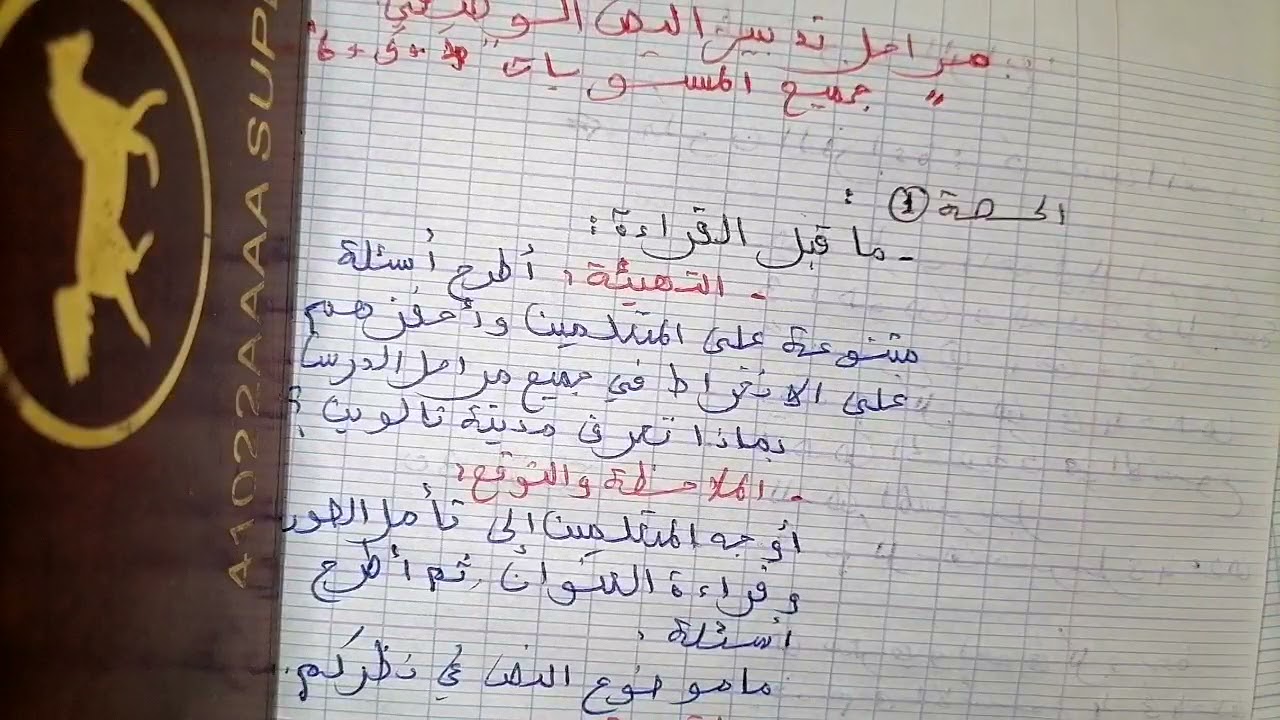 مراحل تدريس النص الوظيفي
" جميع المستويات " 4 + 5 + 6 "
الحصة 1 :
- ما قبل القراءة :
- التهيئة : أطرح أسئلة
متنوعة على المتعلمين وأحفزهم
على الانخراط في جميع مراحل الدرس
بماذا تعرف مدينة تالوين ؟
- الملاحظة والتوقع :
أوجه المتعلمين الى تأمل الصور
وقراءة العنوان ، ثم أطرح
أسئلة :
ما موضوع النص في نظركم
A1022AAAA SUPE